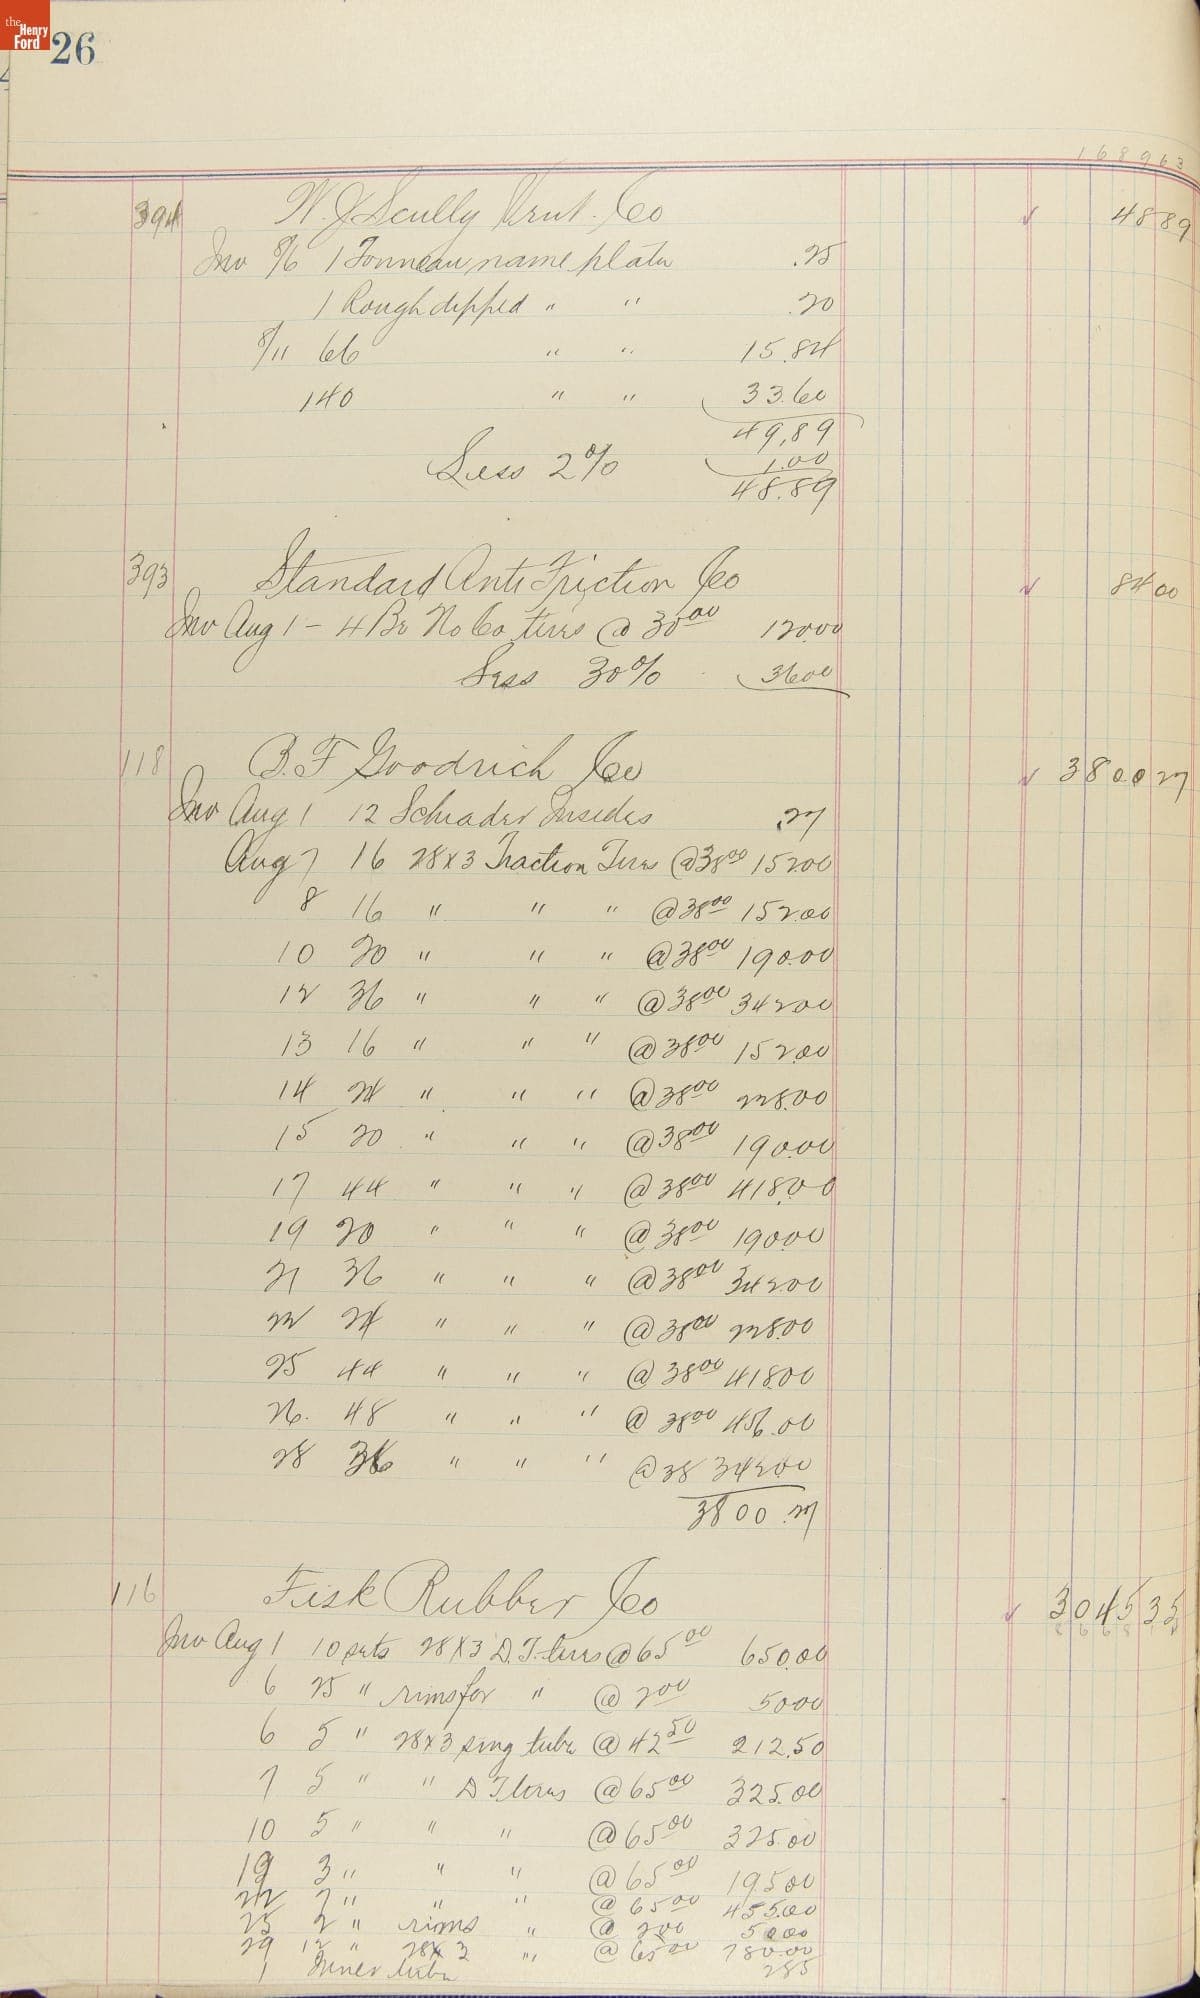 the Henry Ford
26
168963
394 W. J. Scully Co ✓ 48 89
Inv 8/6 1 Tonneau name plate .25
1 Rough dipped " " .20
8/11 66 " " 15.84
140 " " 33.60
49,89
Less 2% 1.00
48.89
393 Standard Anti Friction Co ✓ 84 00
Inv Aug 1 - 4 No Co tires @ 30 00 120.00
Less 30% 36 00
118 B. F Goodrich Co ✓ 3800 27
Inv Aug 1 12 Schrader Insides .27
Aug 7 16 28x3 Traction Tires @ 38 00 152.00
8 16 " " " @ 38 00 152.00
10 20 " " " @ 38 00 190.00
12 36 " " " @ 38 00 342 00
13 16 " " " @ 38 00 152.00
14 24 " " " @ 38 00 228.00
15 20 " " " @ 38 00 190.00
17 44 " " " @ 38 00 418.00
19 20 " " " @ 38 00 190.00
21 36 " " " @ 38 00 342.00
22 24 " " " @ 38 00 228.00
25 44 " " " @ 38 00 418.00
26. 48 " " " @ 38 00 456.00
28 36 " " " @ 38 342.00
3800.27
116 Fisk Rubber Co ✓ 3045 35
Inv Aug 1 10 sets 28X3 D. T. tires @ 65 00 650.00
6 25 " rims for " @ 2 00 50 00
6 5 " 28x3 sing tube @ 42 50 212.50
7 5 " " D T tires @ 65 00 325.00
10 5 " " " @ 65 00 325.00
19 3 " " " @ 65 00 195 00
22 7 " " " @ 65 00 455.00
25 2 " rims " @ 2 00 50 00
29 12 " 28x3 " @ 65 00 780.00
1 Inner tube 2 85